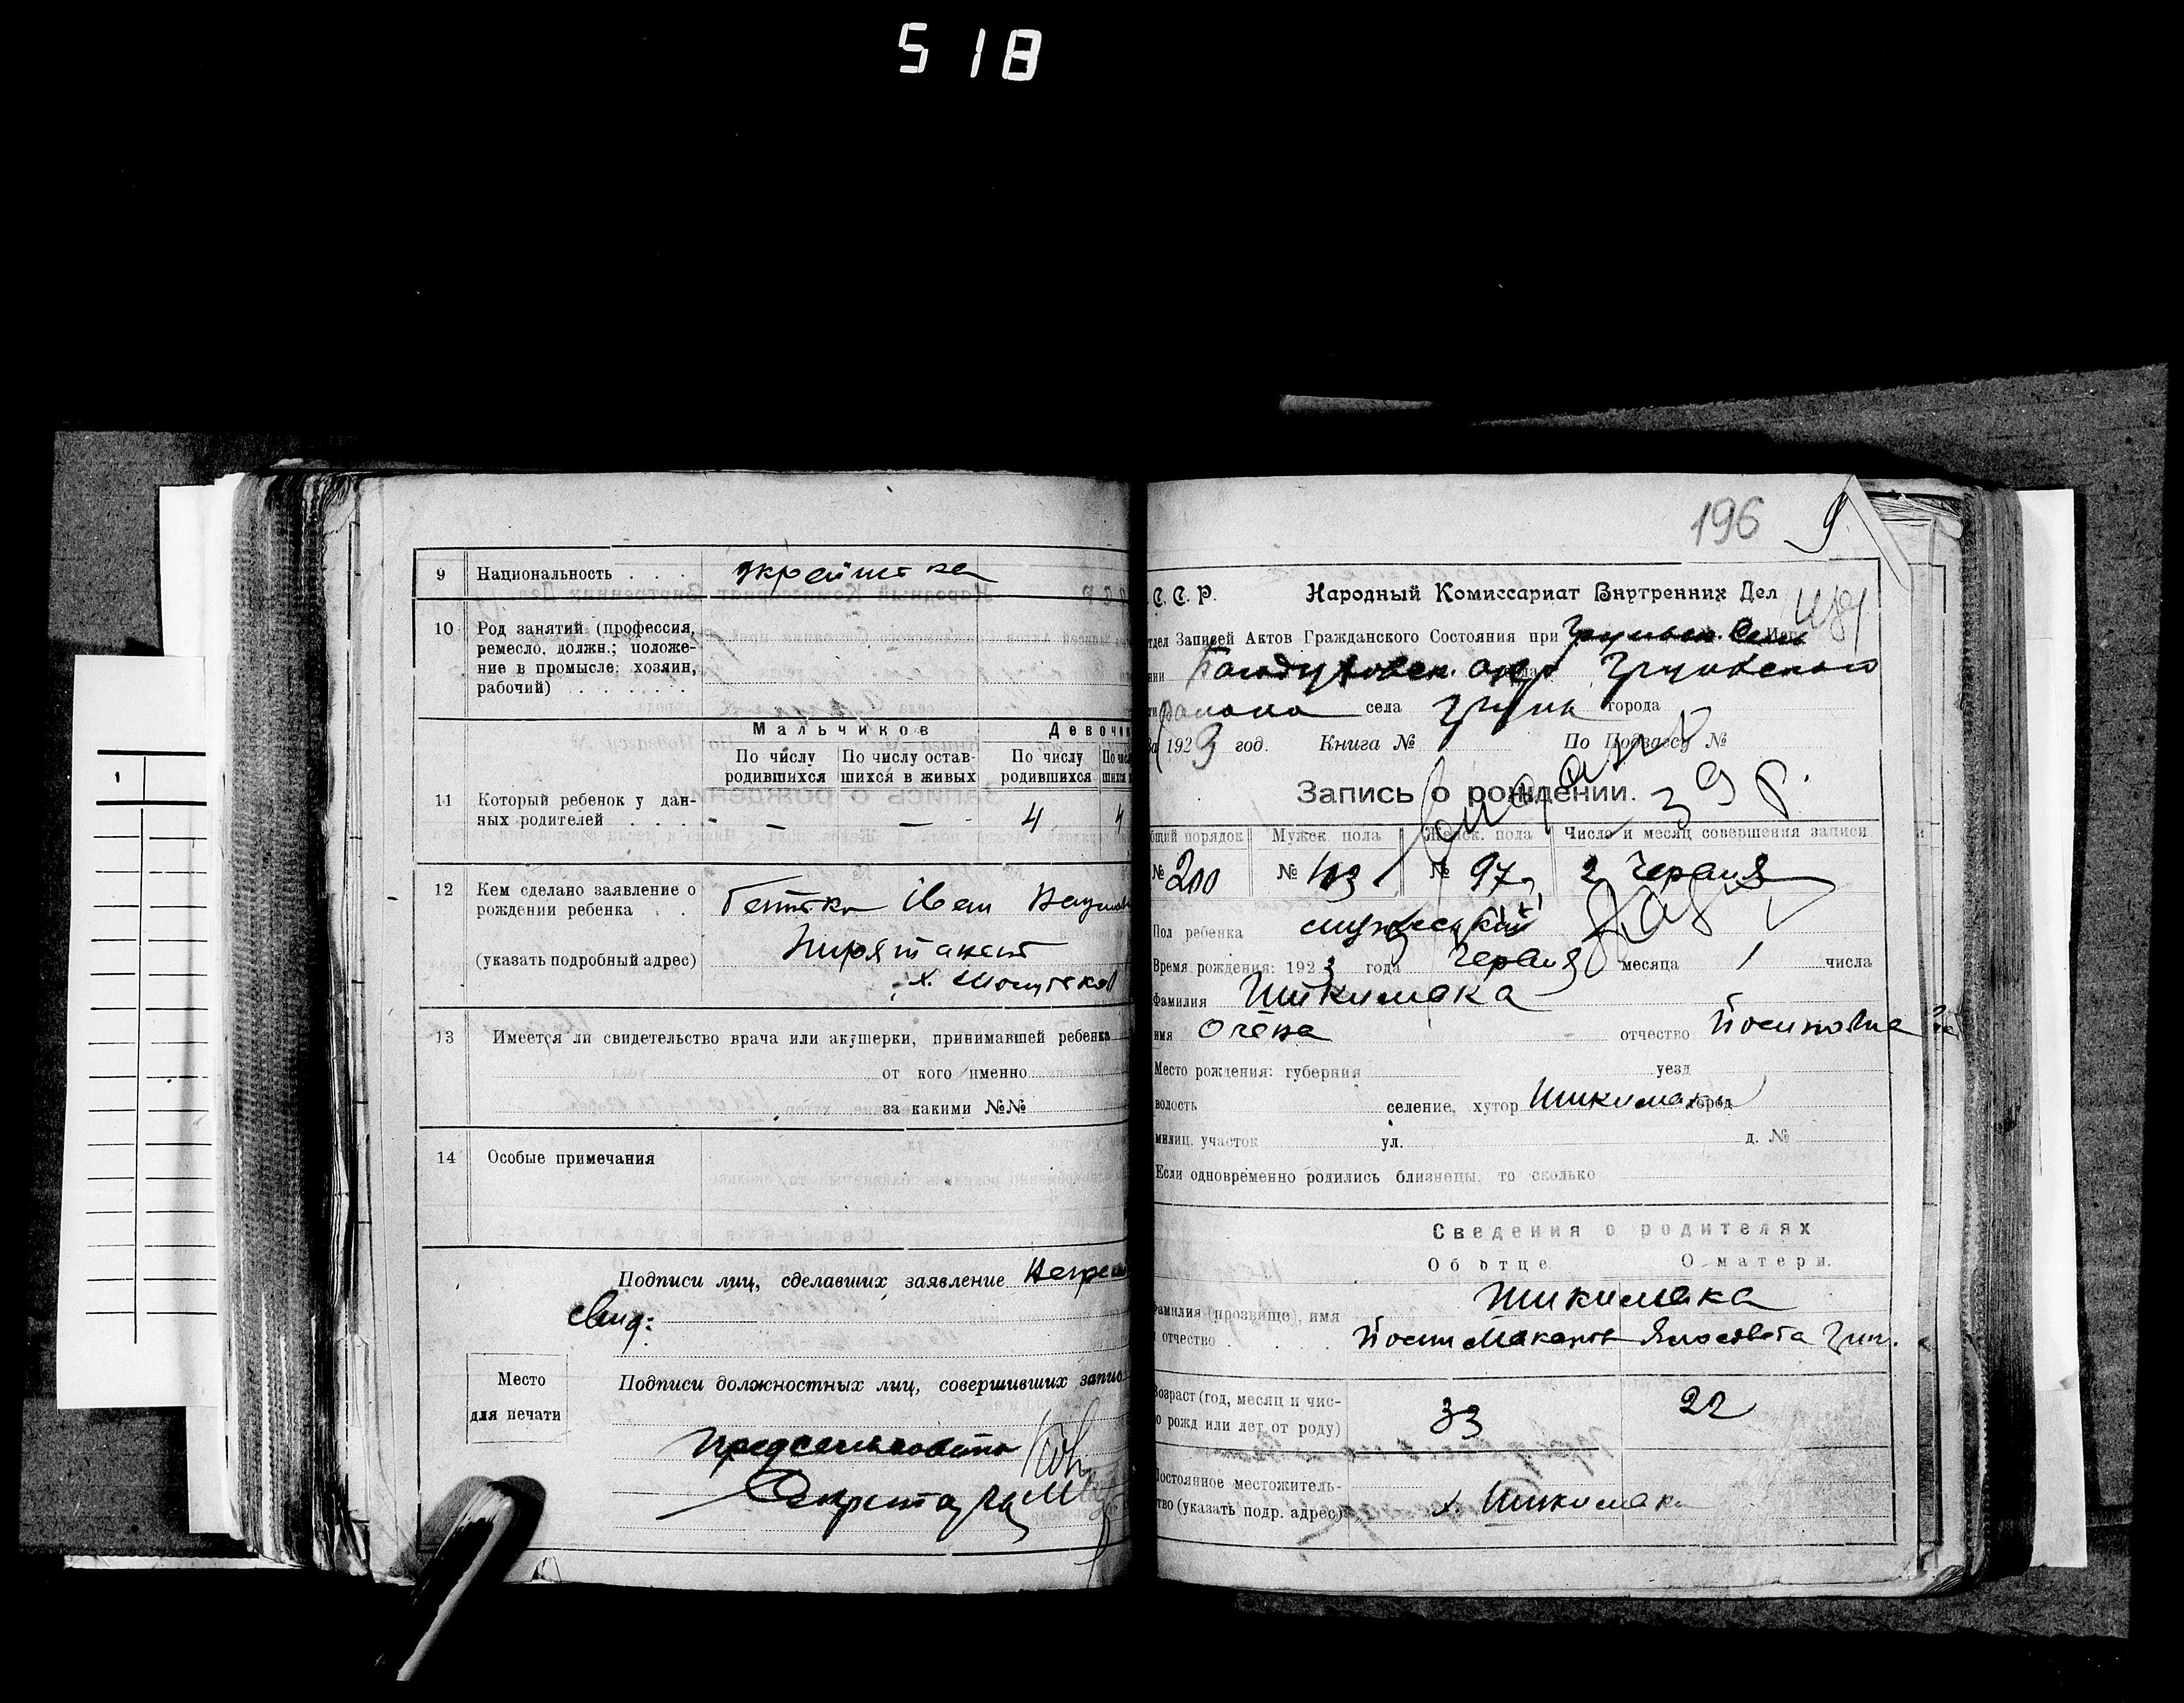 518
9 Национальность . . . українка
10 Род занятий (профессия,
ремесло, должн.; положе-
ние в промысле: хозяин,
рабочий) . . . . . . .
Мальчиков Девочек
По числу родившихся По числу остав-шихся в живых По числу родившихся
11 Который ребенок у дан-
ных родителей . . . . — — 4 4
12 Кем сделано заявление о
рождении ребенка . . Іван
(указать подробный адрес)
х.
13 Имеется ли свидетельство врача или акушерки, принимавшей ребенка
от кого именно
за какими №№
14 Особые примечания
Подписи лиц, сделавших заявление
свид:
Место
для печати
Подписи должностных лиц, совершивших запис
Предсельсовета
Секретарь
196
9
С. С. Р. Народный Комиссариат Внутренних Дел
тдел Записей Актов Гражданского Состояния при
нии Богодуховск. окр
района села Грунь города
За 1923 год. Книга № По Подзагсу №
Запись о рождении. 39 р.
бщий порядок Мужск. пола Женск. пола Число и месяц совершения записи
№ 200 № 103 № 97 2 Червня
Пол ребенка
Время рождения: 1923 года Червня месяца 1 числа
Фамилия Шикимака
имя Олена отчество Йосиповна
Место рождения: губерния уезд
волость селение, хутор Шикимаки город
милиц. участок ул. д. №
Если одновременно родились близнецы, то сколько
Сведения о родителях
Об отце О матери.
Фамилия (прозвище), имя Шикимака
и отчество . . . . Йосип Макаров Григ.
Возраст (год, месяц и чис-
о рожд или лет от роду) 33 22
Постоянное местожитель-
тво (указать подр. адрес) х. Шикимак